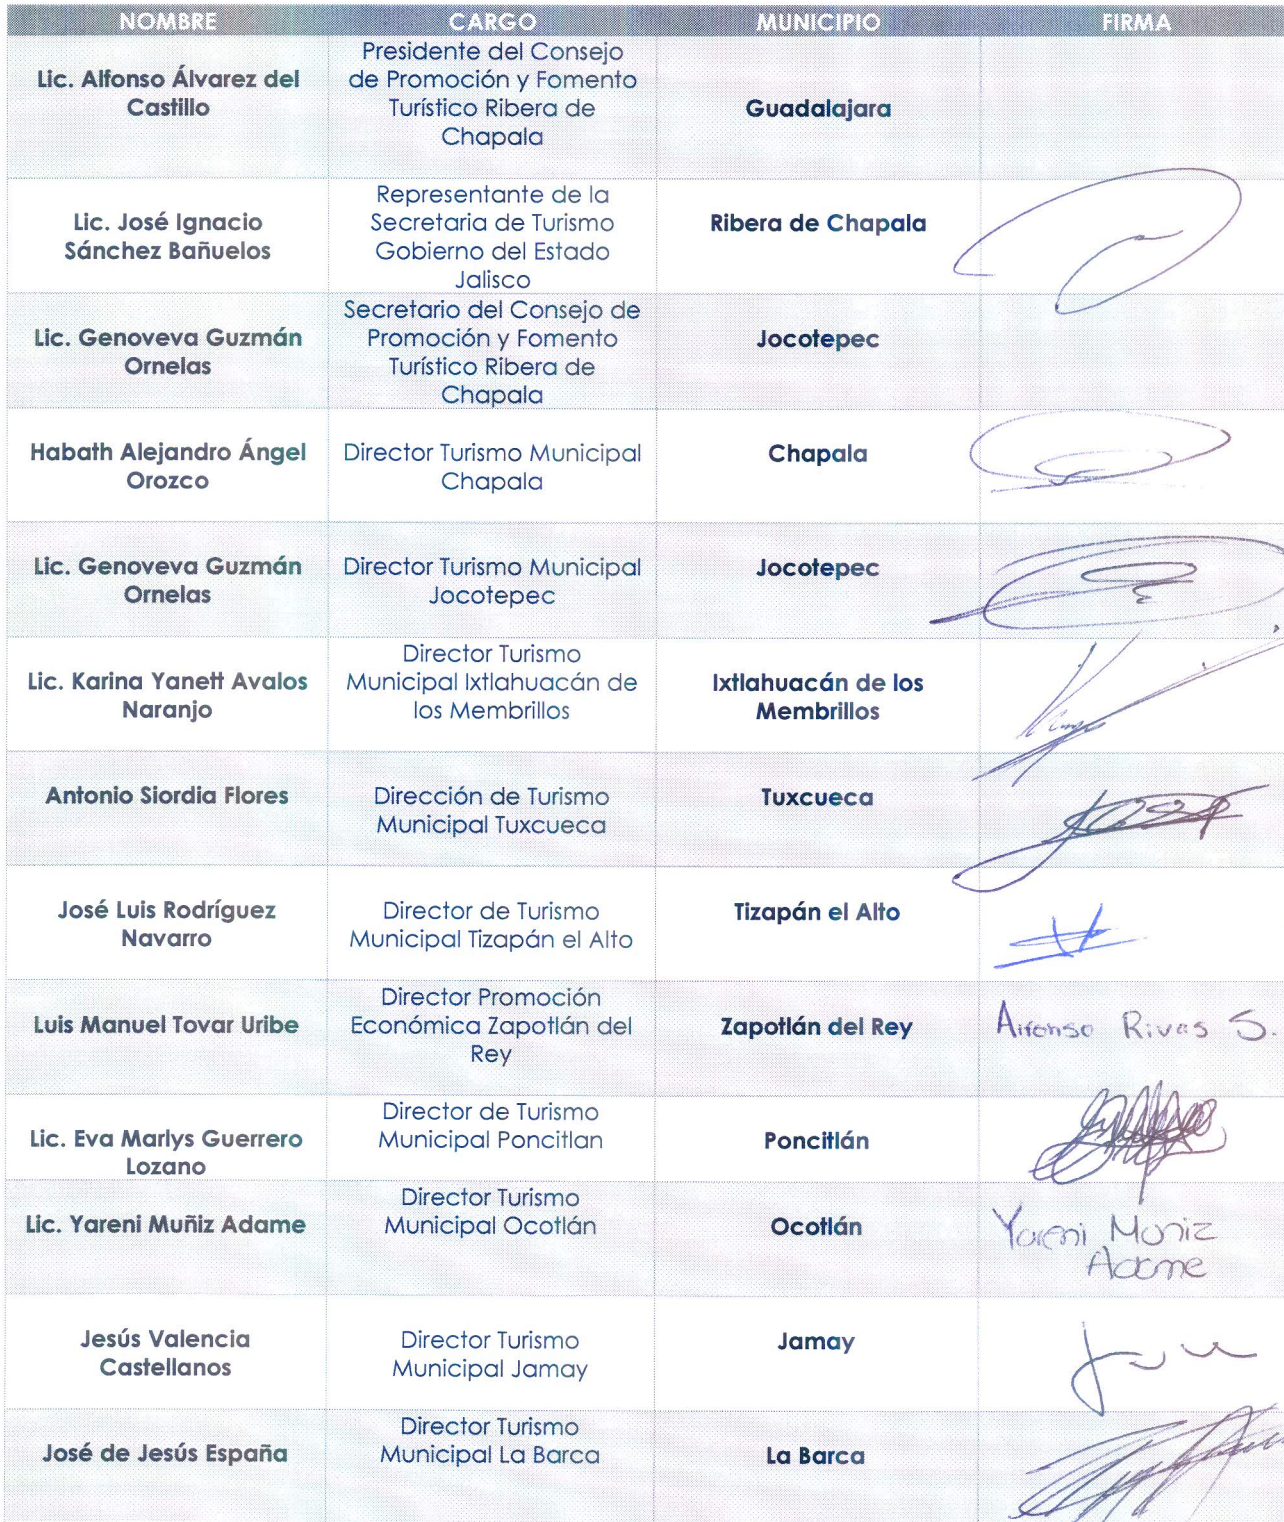 NOMBRE CARGO MUNICIPIO FIRMA
Lic. Alfonso Álvarez del
Castillo
Presidente del Consejo
de Promoción y Fomento
Turístico Ribera de
Chapala
Guadalajara
Lic. José Ignacio
Sánchez Bañuelos
Representante de la
Secretaria de Turismo
Gobierno del Estado
Jalisco
Ribera de Chapala
Lic. Genoveva Guzmán
Ornelas
Secretario del Consejo de
Promoción y Fomento
Turístico Ribera de
Chapala
Jocotepec
Habath Alejandro Ángel
Orozco
Director Turismo Municipal
Chapala
Chapala
Lic. Genoveva Guzmán
Ornelas
Director Turismo Municipal
Jocotepec
Jocotepec
Lic. Karina Yanett Avalos
Naranjo
Director Turismo
Municipal Ixtlahuacán de
los Membrillos
Ixtlahuacán de los
Membrillos
Antonio Siordia Flores
Dirección de Turismo
Municipal Tuxcueca
Tuxcueca
José Luis Rodríguez
Navarro
Director de Turismo
Municipal Tizapán el Alto
Tizapán el Alto
Luis Manuel Tovar Uribe
Director Promoción
Económica Zapotlán del
Rey
Zapotlán del Rey
Alfonso Rivas S.
Lic. Eva Marlys Guerrero
Lozano
Director de Turismo
Municipal Poncitlan
Poncitlán
Lic. Yareni Muñiz Adame
Director Turismo
Municipal Ocotlán
Ocotlán
Yareni Muniz
Adame
Jesús Valencia
Castellanos
Director Turismo
Municipal Jamay
Jamay
José de Jesús España
Director Turismo
Municipal La Barca
La Barca